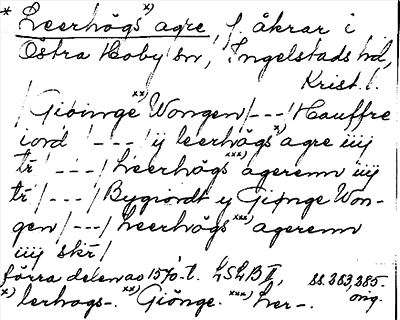 * Leerhögs x) agre, f. åkrar i
Östra Hoby sn, Ingelstads hd,
Krist. l.
/Giöinge xx) Wongen/---/Hauffre
iord /---/ ij leerhögs x) agre iiij
tr/ /---/ Leerhögs xxx) agerenn iiij
tr/---/ Bygiordt y Giönge Won-
gen/---/ Leerhögs xxx) agerenn
iiij skr/
förra delen av 1570-t. LSLB II, ss. 383,385.
orig.
x) lerhogs-. xx) Giönge. xxx) Ler-.